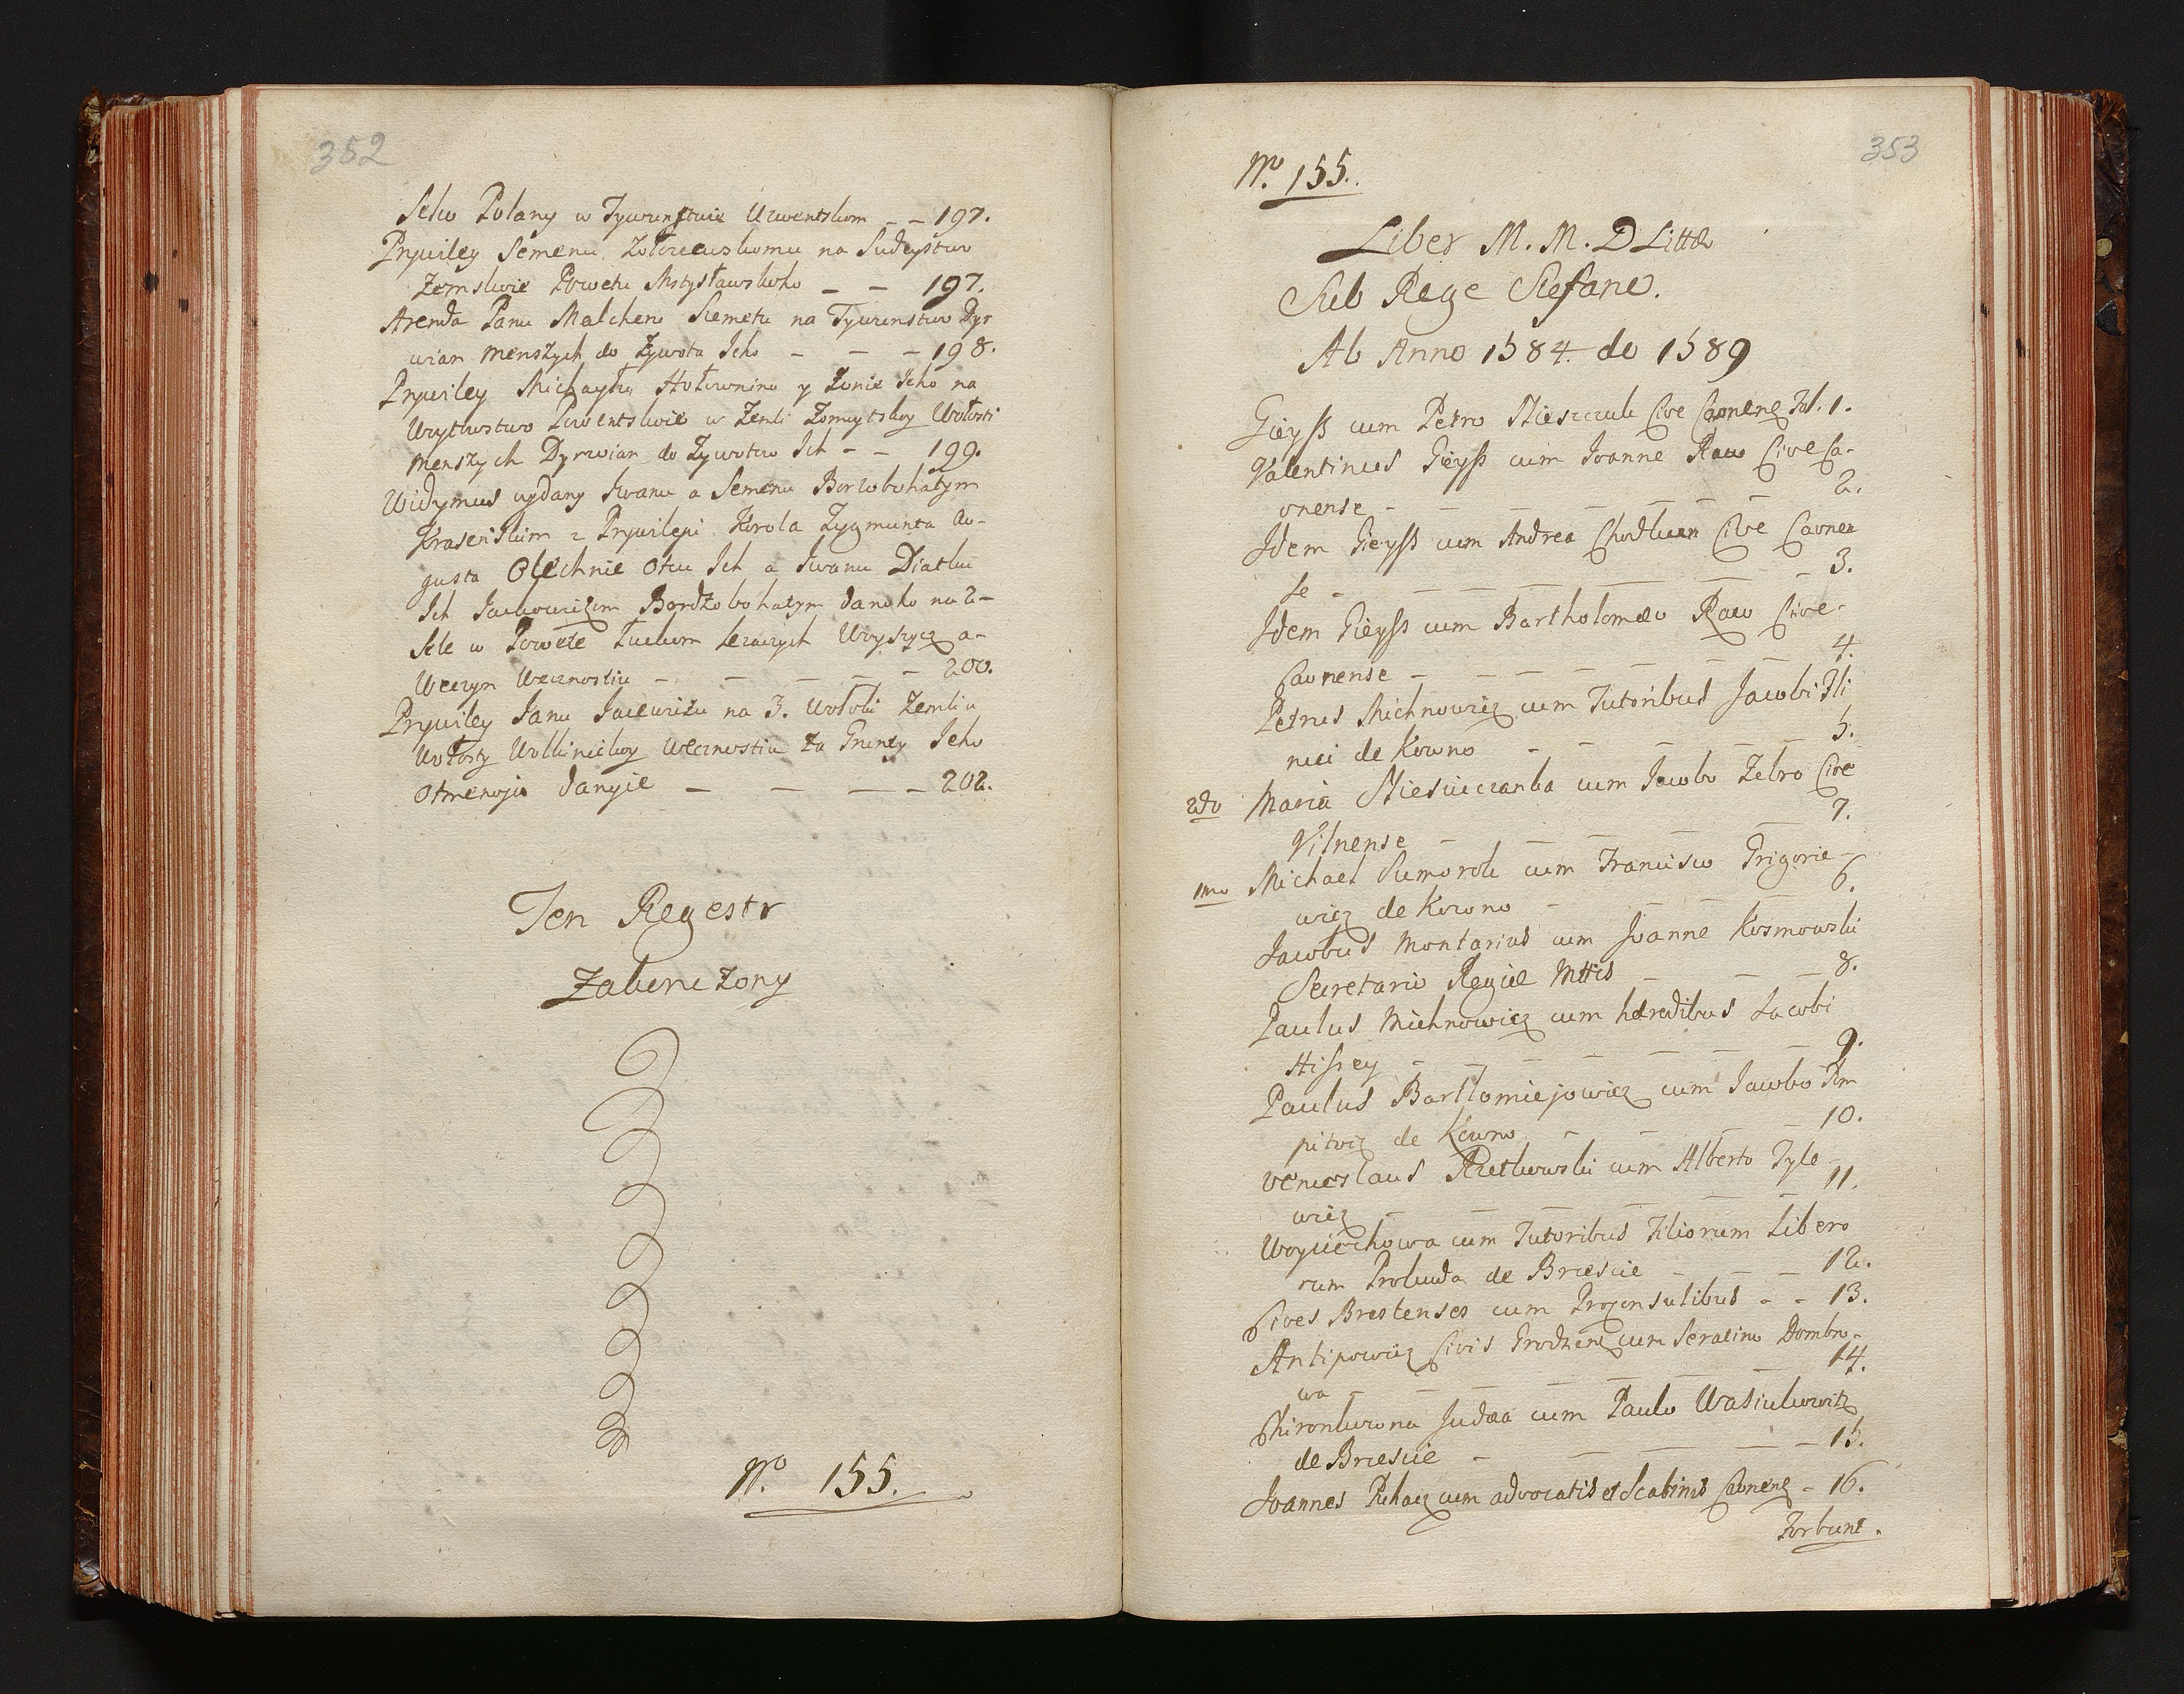 352
Seło Polany w Tywunstwie Uzwentskom – – 197.
Prywiley Semenu Zołtreewskomu na Sudeystwo
Zemskoie Powetu Mstysławskoho – – 197.
Arenda Panu Malcheru Siemetu na Tywunstwo Dyr
wian menszych do Zywota Jeho – – – 198.
Prywiley Michayłu Hołowninu y Zonie Jeho na
Woytowstwo Powentskoie w Zemli Zomoytskoy Wołosti
menszych Dyrwian do Zywotow Jch – – 199.
Widymus wydany Iwanu a Semenu Borzobohatym
Krasenskim z Prywileju Korola Zygmunta Au-
gusta Olechnie Otcu Jch a Iwanu Diatku
Jch Jackowiczom Bordzobohatym danoho na 2-
Sele w Powete Łuckom lezaczych Wryszcz a-
Weczym Wecznostiu – – – – – 200.
Prywiley Janu Jacewiczu na 3. Wołoki Zemli u
Wołosty Wolkinickoy Wecznostiu za Grunty Jeho
Otmenoju danyie – – – – 202.
Ten Regestr
Zakonczony
No. 155.
353
No. 155.
Liber M. M. D Littæ
Sub Rege Stefano.
Ab Anno 1584. do 1589
Gieyss cum Petro Stieszczuk Cive Caonenz Fol. 1.
Valentinus Gieyss cum Joanne Raw Cive Ca-
onense – – – – – – 2.
Jdem Gieyss cum Andrea Chodkuen Cive Caonen
se – – – – – – 3.
Jdem Gieyss cum Bartholomæo Raw Cive-
Caonense – – – – – – 4.
Petrus Michnowicz cum Tutoribus Jacobi Ili
nici de Kowno – – – – – 5.
2do Maria Stiesuiczanka cum Jacobo Zebro Cive
Vilnense – – – – 7.
1mo Michael Sumorok cum Francisco Grigorie-
wicz de Kowno – – – – 6.
Jacobus Montarius cum Joanne Kosmowski
Secretario Regiæ Mttis – – – 8.
Paulus Michnowicz cum hæredibus Jacobi
Hissey – – – – – – – 9.
Paulus Bartlomiejowicz cum Jacobo Pom
pitwicz de Kowno – – – – 10.
Venceslaus Rutkowski cum Alberto Tyle-
wicz – – – – – – 11.
Woyciechowa cum Tutoribus Filiorum Libero
rum Prokuda de Brzescie – – – 12.
Cives Brestenses cum Proconsulibus – – 13.
Antipowicz Civis Grodnenz cum Serafino Dombro-
wa – – – – – – 14.
Chironkowna Judæa cum Paulo Wasiukowicz
de Brzescie – – – – – 15.
Joannes Puhacz cum advocatis et Scabinis Caonenz – 16.
Forbunt.